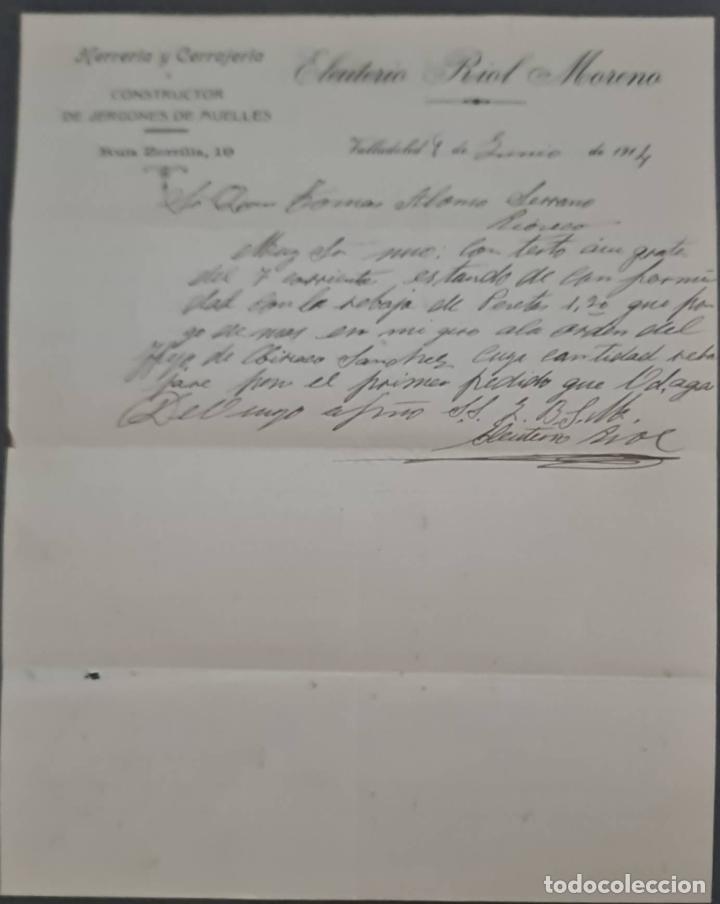 Herrería y Cerrajería
Y
CONSTRUCTOR
DE JERGONES DE MUELLES
Ruiz Zorrilla, 10
Eleuterio Riol Moreno
Valladolid 9 de Junio de 1914
Sr Don Tomas Alonso Serrano
Rioseco
Muy Sr mio: Contesto á su grata
del 7 corriente estando de conformi
dad con la rebaja de Pesetas 1,20 que pon
go de mas en mi giro a la orden del
Hijo de Sanchez, cuya cantidad reba
jare por el primer pedido que Vd, aga
De Vd suyo afmo S.S. q. B.S.M.
Eleuterio Riol
todocoleccion
todocoleccion